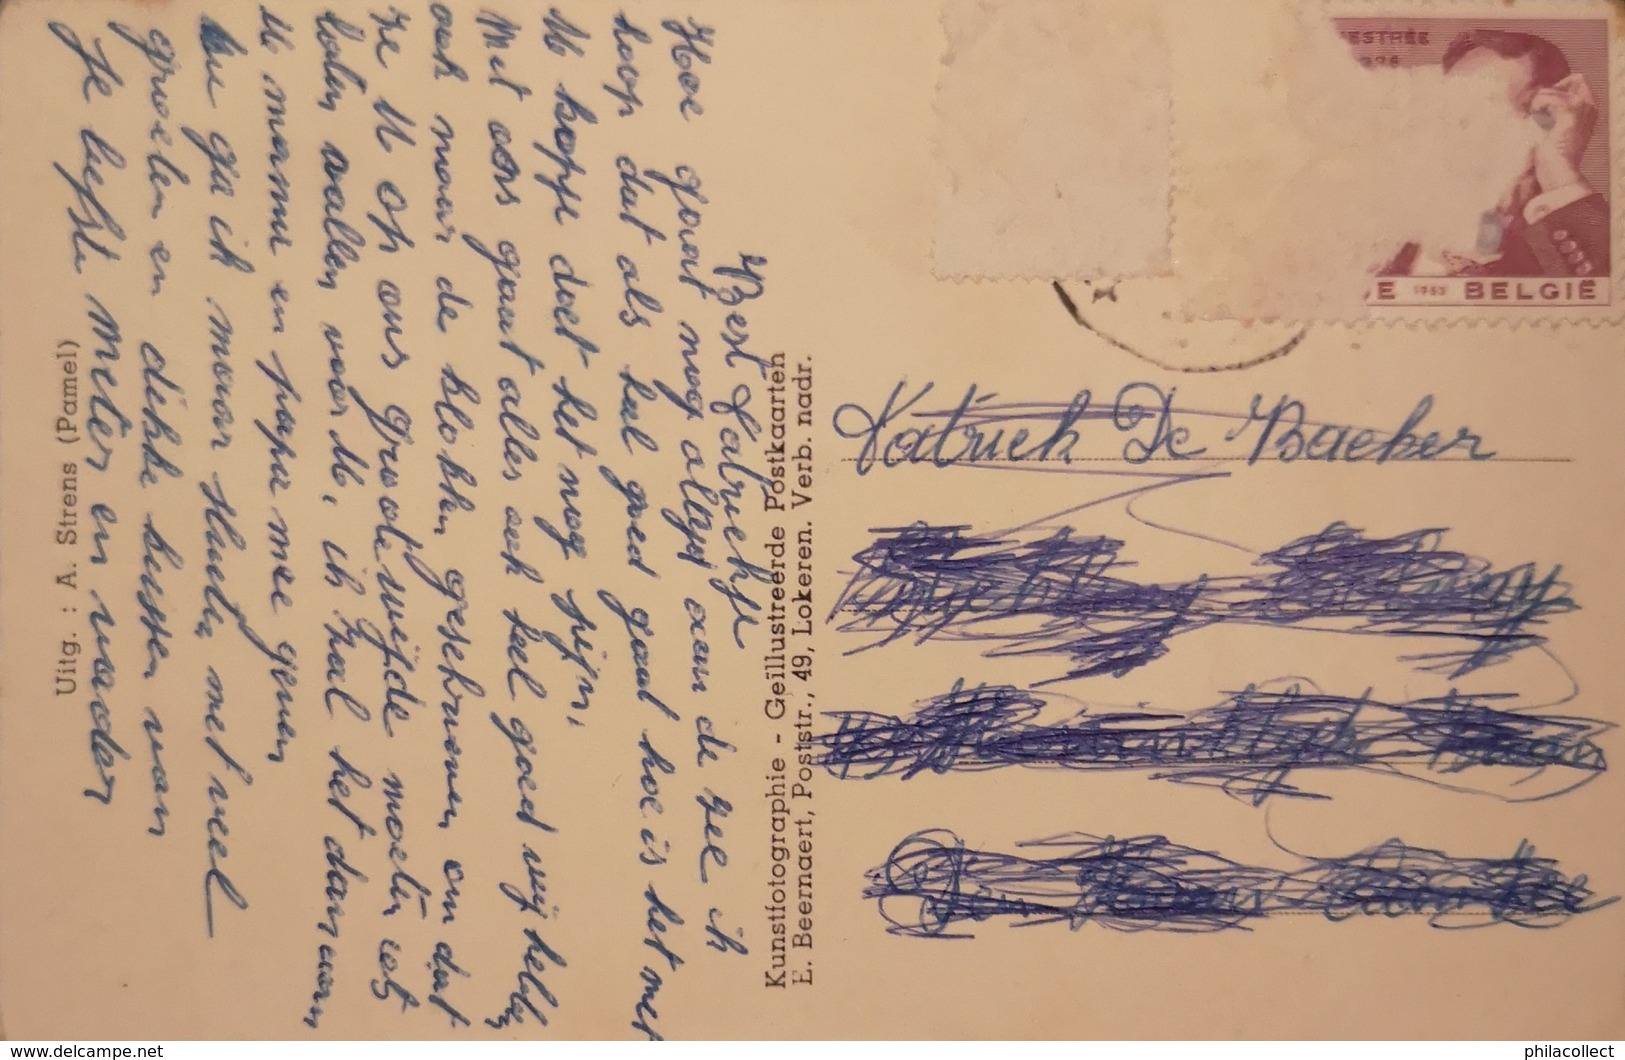 Best Patriekje
Hoe gaat nog altijd aan de zee ik
hoop dat als heel goed gaat hoe is het met
U kopje doet het nog pijn,
Met ons gaat alles ook heel goed wij hebben
ook naar de klokken geschreven om dat
ze U op ons groote weijde moeten iets
laten vallen voor U, ik zal het dan aan
U mama en papa mee geven
nu ga ik maar sluiten met veel
groeten en dikke kussen van
Je liefste Meter en vader
Uitg. : A. Strens (Pamel)
Kunstfotographie - Geillustreerde Postkaarten
E. Beernaert, Poststr., 49, Lokeren. Verb. nadr.
ESTRÉE
E 1963 BELGIË
Patriek De Backer
delcampe.net
philacollect